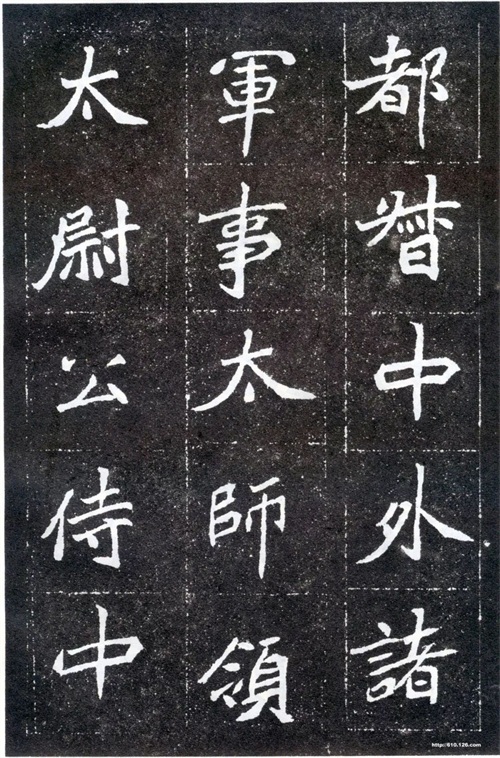 都督中外諸
軍事太師領
太尉公侍中
http://610.126.com